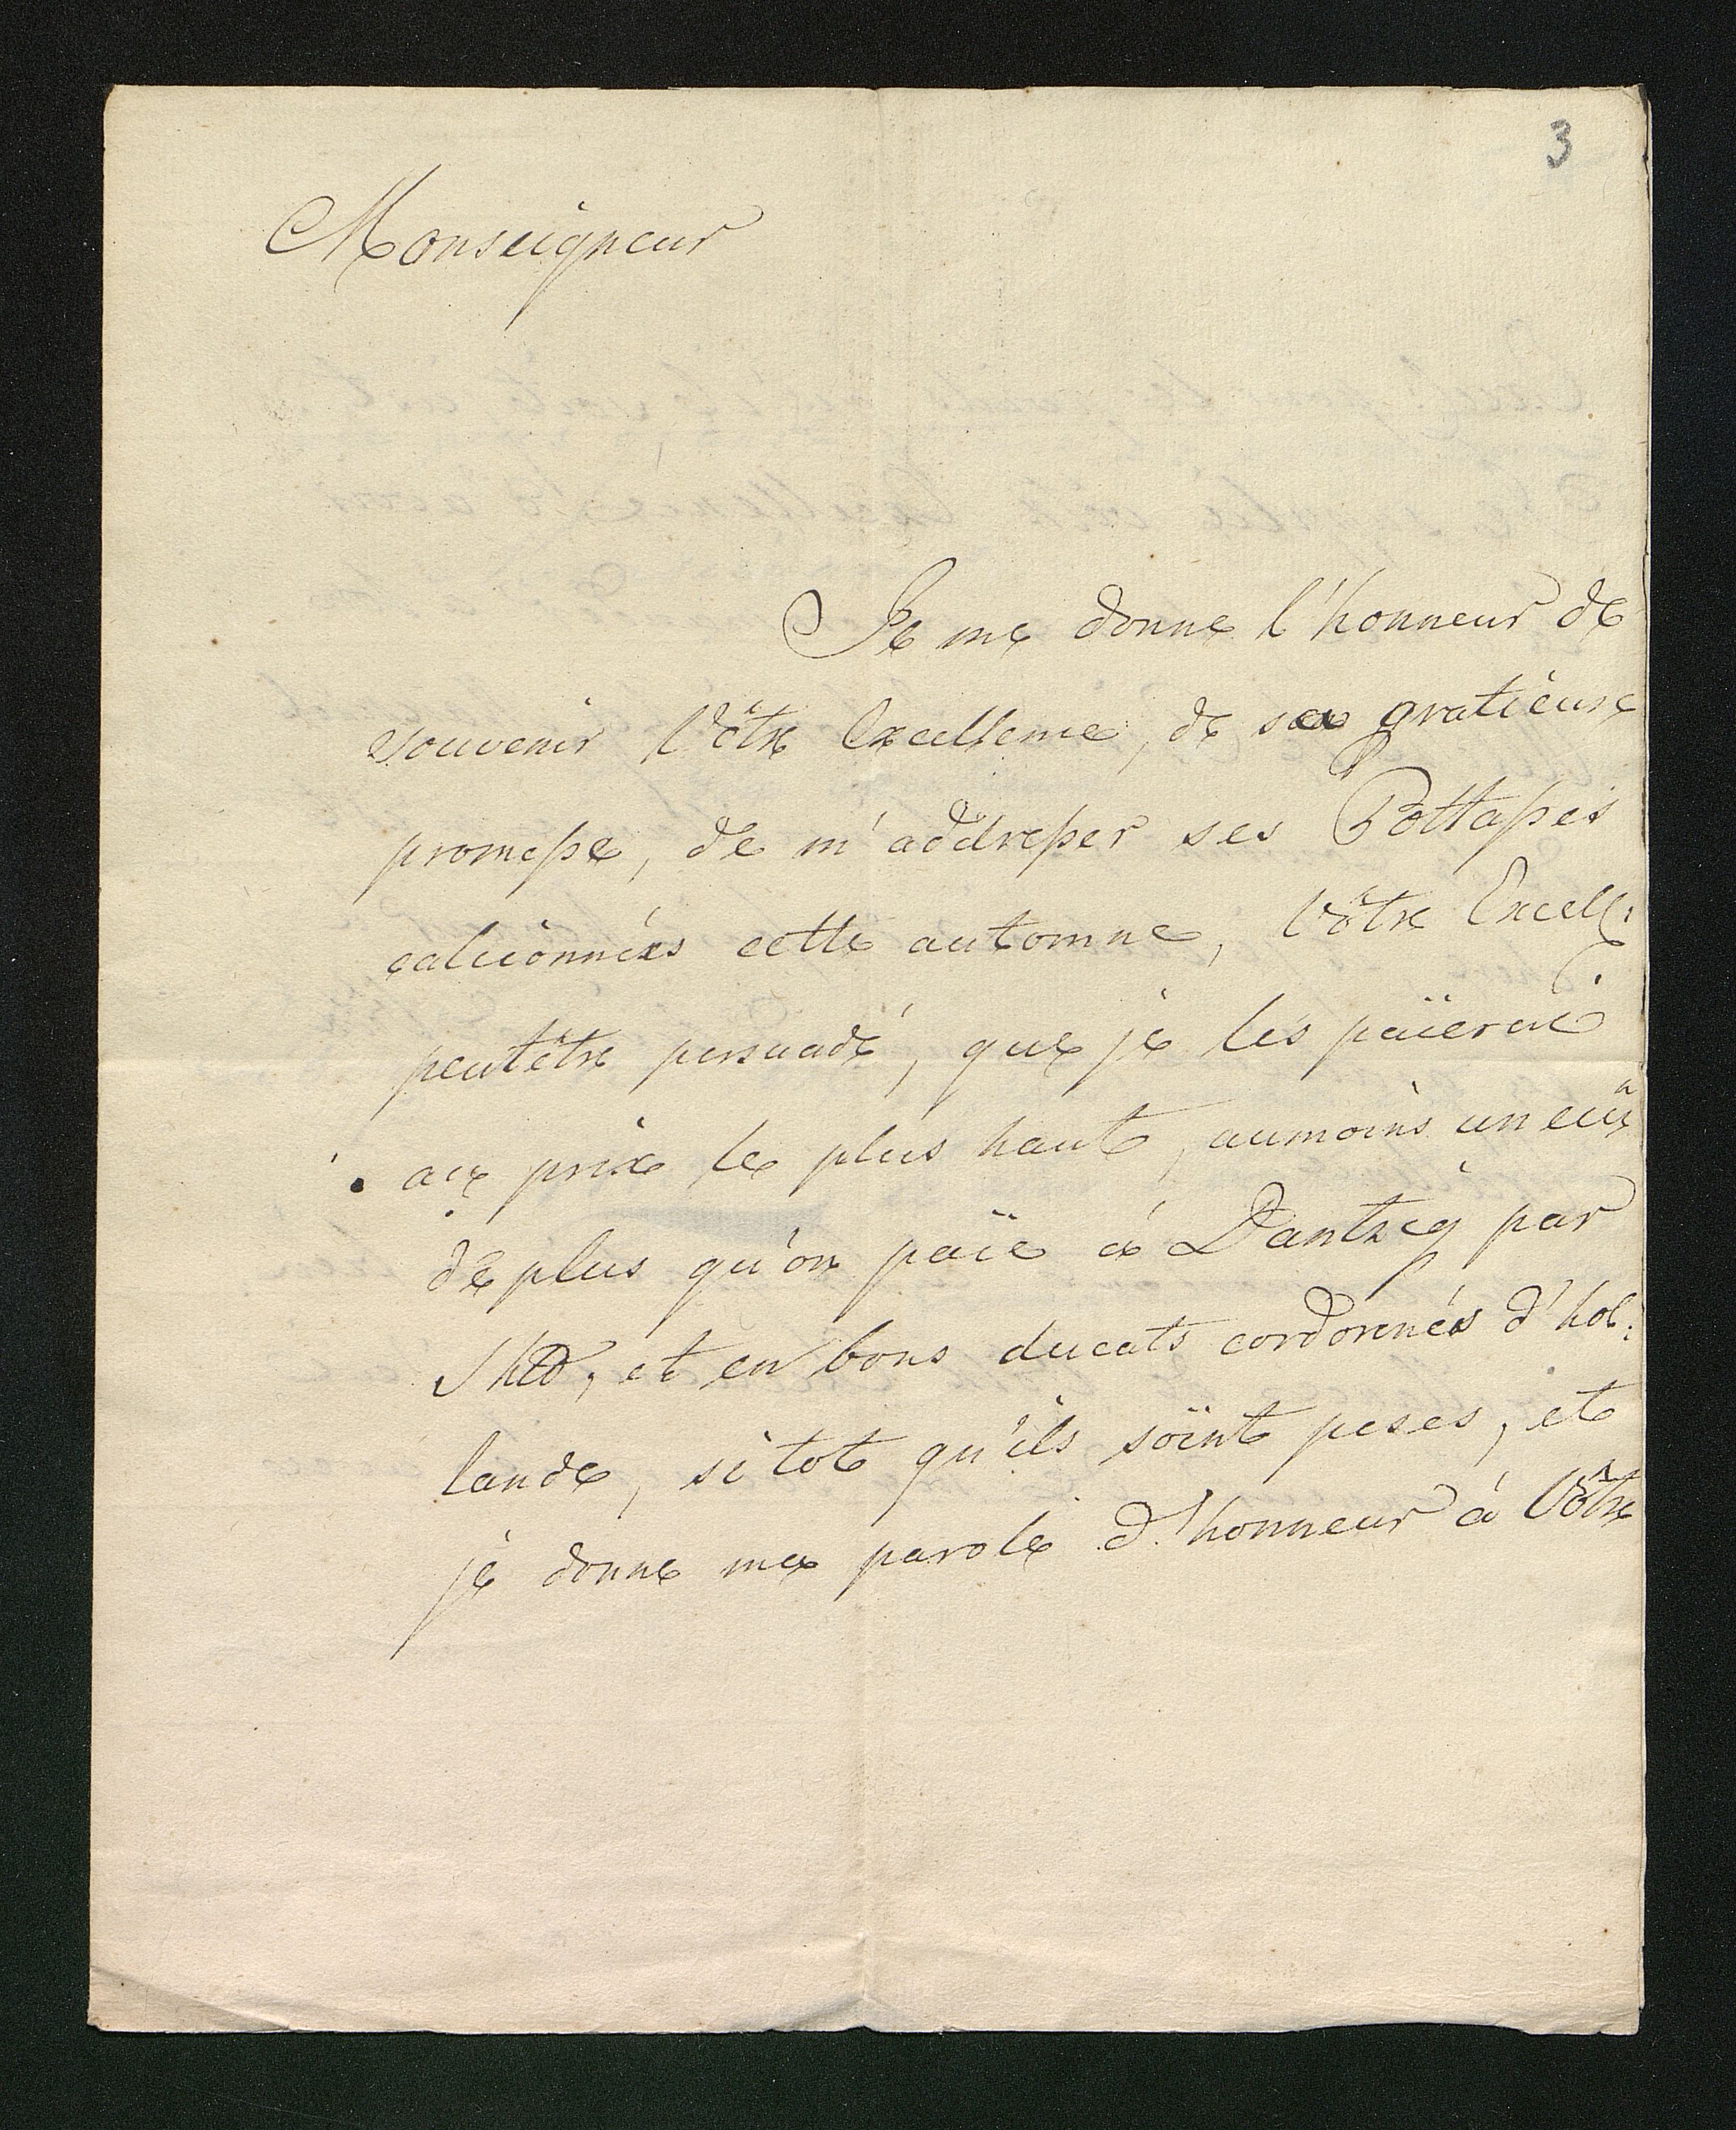 3
Monseigneur
Je me donne l'honneur de
souvenir Vôtre Excellence, de sa gratieuse
promesse, de m'addresser ses Pottasses
calcionnées cette automne, Vôtre Excell:
peutêtre persuadé, que je les païerai
au prix le plus haut, aumoins un ecû
de plus qu'on païe à Dantzcg par
et en bons ducats cordonnés d'hol:
lande, sitot qu'ils soïnt peses, et
je donne ma parole d'honneur à Vôtre